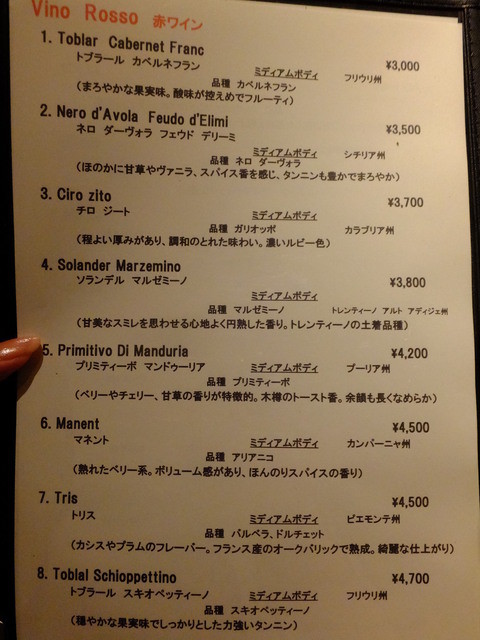 Vino Rosso 赤ワイン
1. Toblar Cabernet Franc
トブラール カベルネフラン ¥3,000
ミディアムボディ フリウリ州
品種 カベルネフラン
(まろやかな果実味。酸味が控えめでフルーティ)
2. Nero d'Avola Feudo d'Elimi
ネロ ダーヴォラ フェウド デリーミ ¥3,500
ミディアムボディ シチリア州
品種 ネロ ダーヴォラ
(ほのかに甘草やヴァニラ、スパイス香を感じ、タンニンも豊かでまろやか)
3. Ciro zito ¥3,700
チロ ジート ミディアムボディ
品種 ガリオッポ カラブリア州
(程よい厚みがあり、調和のとれた味わい。濃いルビー色)
4. Solander Marzemino
ソランデル マルゼミーノ ¥3,800
ミディアムボディ
品種 マルゼミーノ トレンティーノ アルト アディジェ州
(甘美なスミレを思わせる心地よく円熟した香り。トレンティーノの土着品種)
5. Primitivo Di Manduria ¥4,200
プリミティーボ マンドゥーリア ミディアムボディ プーリア州
品種 プリミティーボ
(ベリーやチェリー、甘草の香りが特徴的。木樽のトースト香。余韻も長くなめらか)
6. Manent ¥4,500
マネント ミディアムボディ カンパーニャ州
品種 アリアニコ
(熟れたベリー系。ボリューム感があり、ほんのりスパイスの香り)
7. Tris ¥4,500
トリス ミディアムボディ ピエモンテ州
品種 バルベラ、ドルチェット
(カシスやプラムのフレーバー。フランス産のオークバリックで熟成。綺麗な仕上がり)
8. Toblal Schioppettino ¥4,700
トブラール スキオペッティーノ ミディアムボディ フリウリ州
品種 スキオペッティーノ
(穏やかな果実味でしっかりとした力強いタンニン)